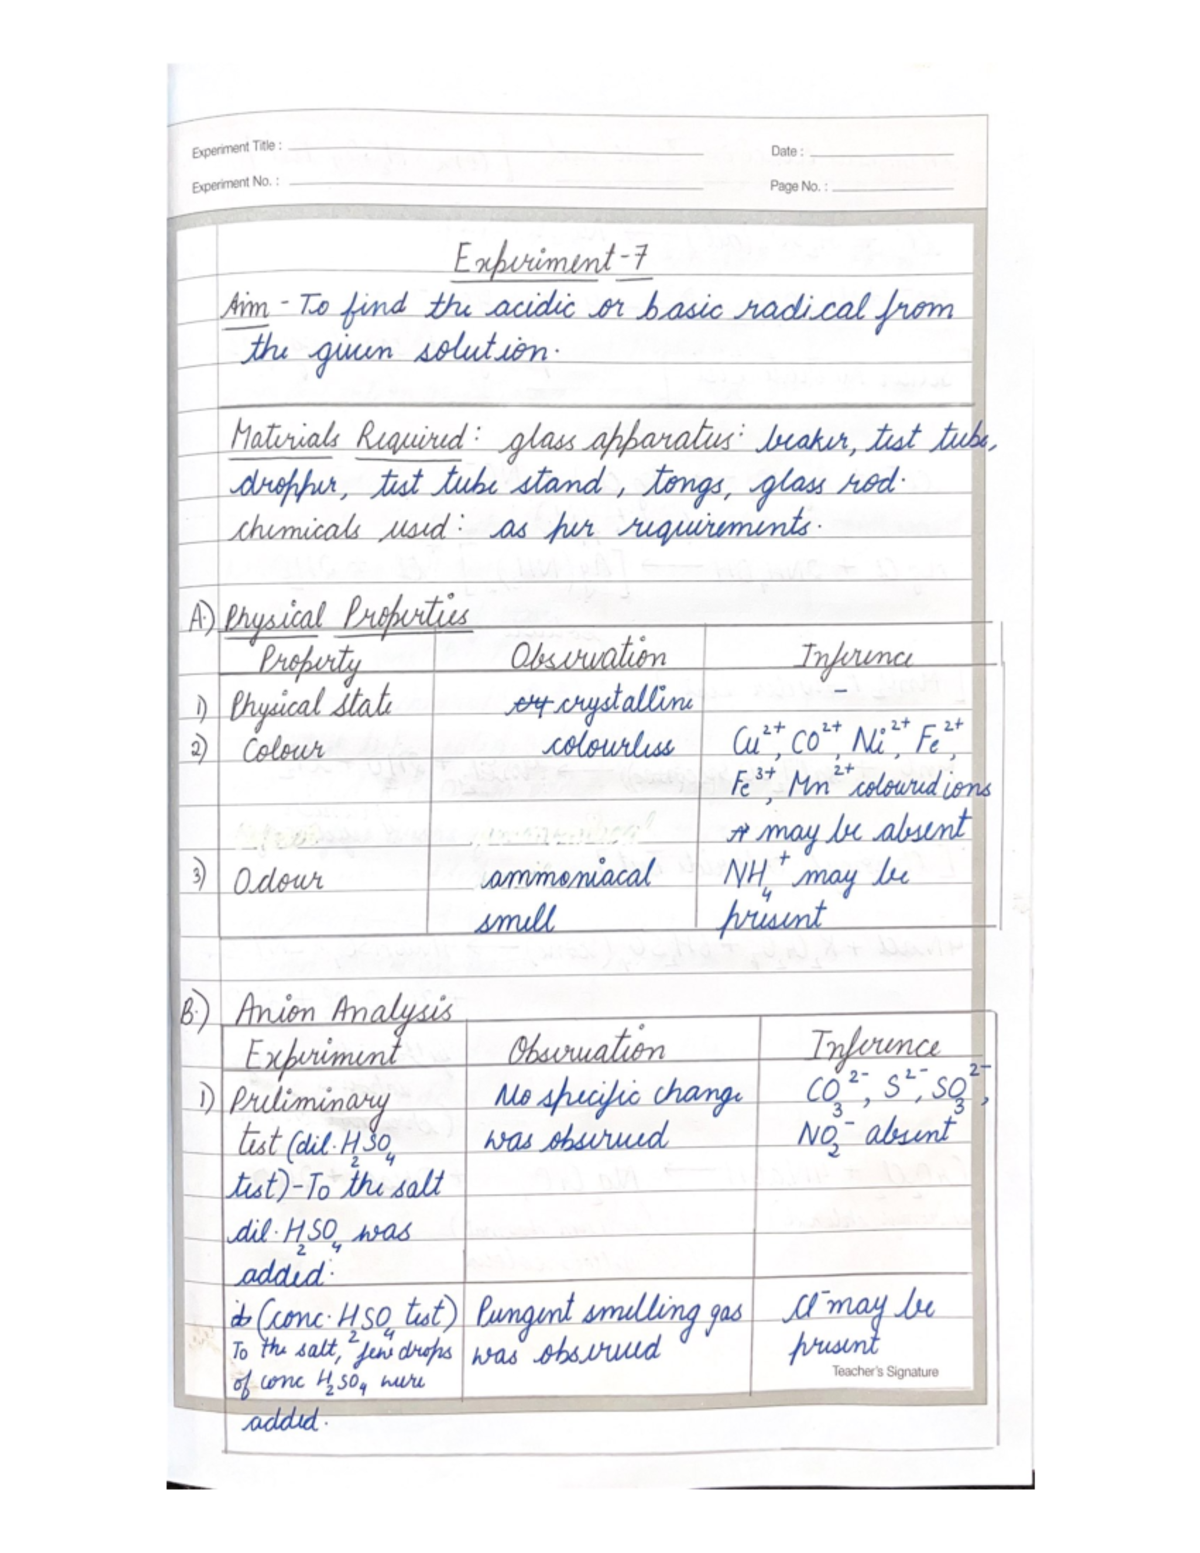 Experiment Title :
Date :
Experiment No. :
Page No. :
Experiment-7
Aim - To find the acidic or basic radical from
the given solution.
Materials Required: glass apparatus: beaker, test tube,
dropper, test tube stand, tongs, glass rod.
chemicals used: as per requirements.
A.) Physical Properties
Property Observation Inference
1) Physical state crystalline -
2) Colour colourless Cu²⁺, CO²⁺, Ni²⁺, Fe²⁺,
Fe³⁺, Mn²⁺ coloured ions
may be absent
3) Odour ammoniacal NH₄⁺ may be
smell present
B.) Anion Analysis
Experiment Observation Inference
1) Preliminary No specific change CO₃²⁻, S²⁻, SO₃²⁻,
test (dil. H₂SO₄ was observed NO₂⁻ absent
test) - To the salt
dil. H₂SO₄ was
added.
(conc. H₂SO₄ test) Pungent smelling gas Cl⁻ may be
To the salt, few drops was observed present
of conc H₂SO₄ were
added.
Teacher's Signature